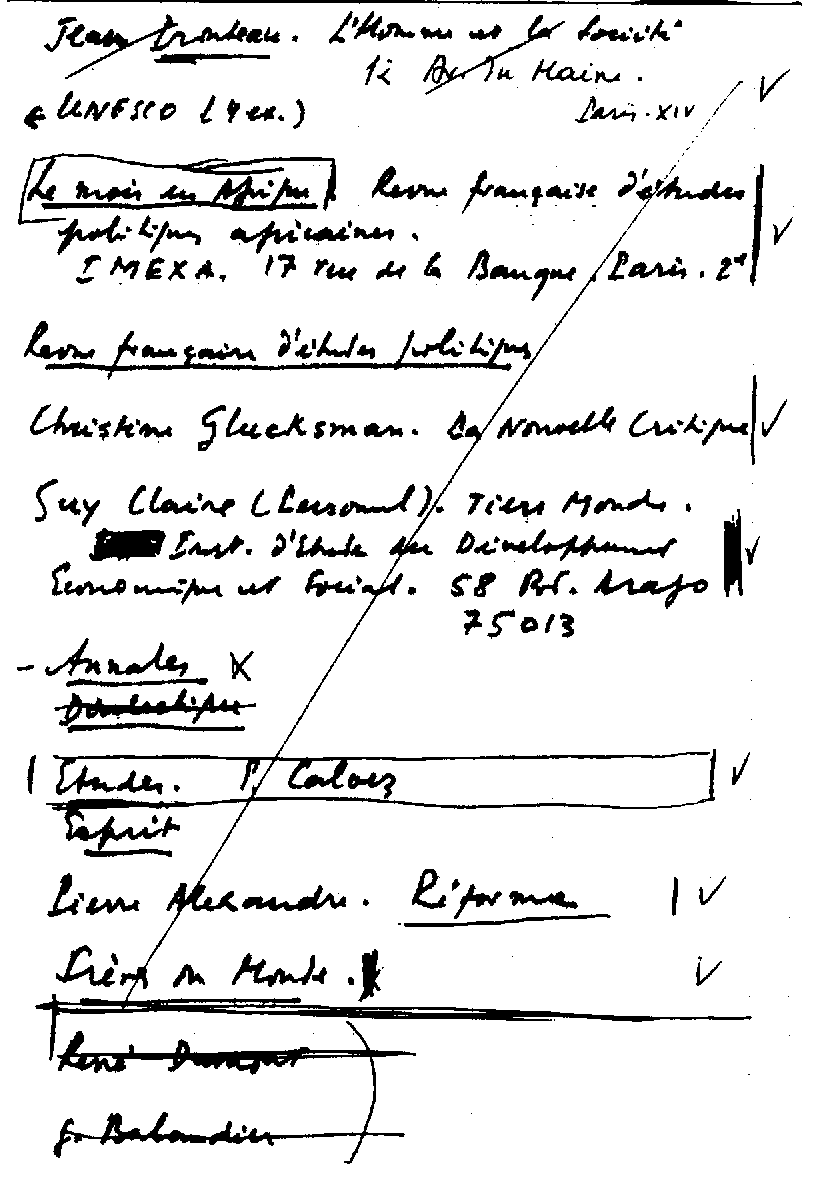 Jean Pronteau. L'Homme et la Société
12 Av. du Maine.
UNESCO (4 ex.) Paris-XIV
Le mois en Afrique. Revue française d'études
politiques africaines.
IMEXA. 17 rue de la Banque. Paris. 2e
Revue française d'études politiques
Christine Glucksman. La Nouvelle Critique
Guy Claire (Personnel). Tiers Monde.
Inst. d'Etude du Développement
Economique et Social. 58 Bd. Arago
75013
- Annales X
Dialectique
Etudes. P. Calvez
Esprit
Pierre Alexandre. Réforme
Frères du Monde.
René Dumont
G. Balandier